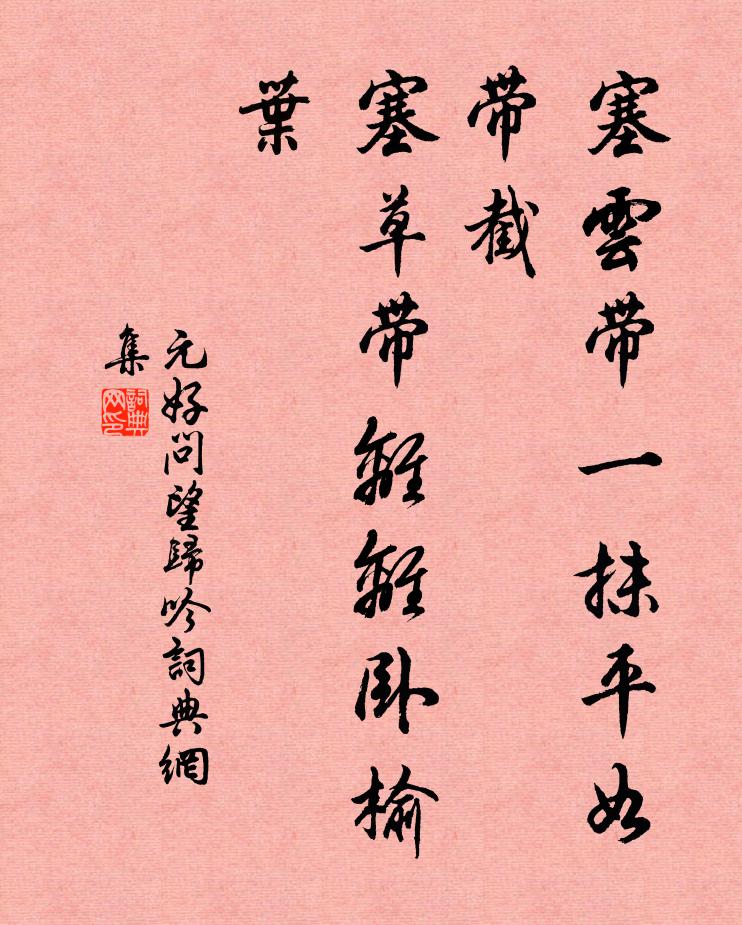 塞雲帶一抹平如
帶截
塞草帶離離卧榆
葉
元好問望歸吟詞典網
集
詞典
网印